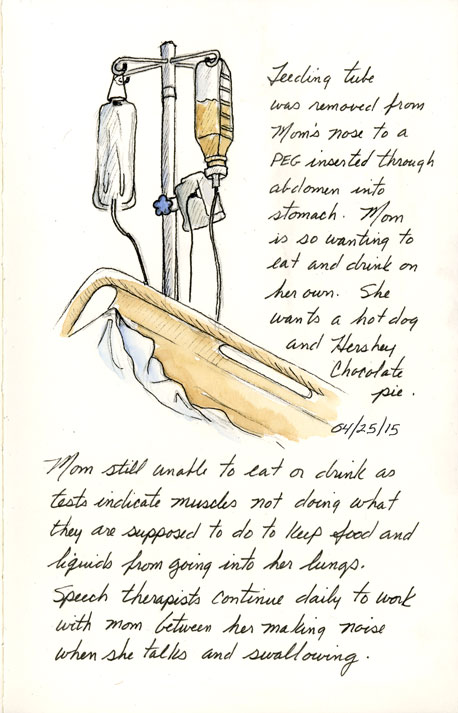 Feeding tube
was removed from
Mom's nose to a
PEG inserted through
abdomen into
stomach. Mom
is so wanting to
eat and drink on
her own. She
wants a hot dog
and Hershey
Chocolate
pie.
04/25/15
Mom still unable to eat or drink as
tests indicate muscles not doing what
they are supposed to do to keep food and
liquids from going into her lungs.
Speech therapists continue daily to work
with mom between her making noise
when she talks and swallowing.